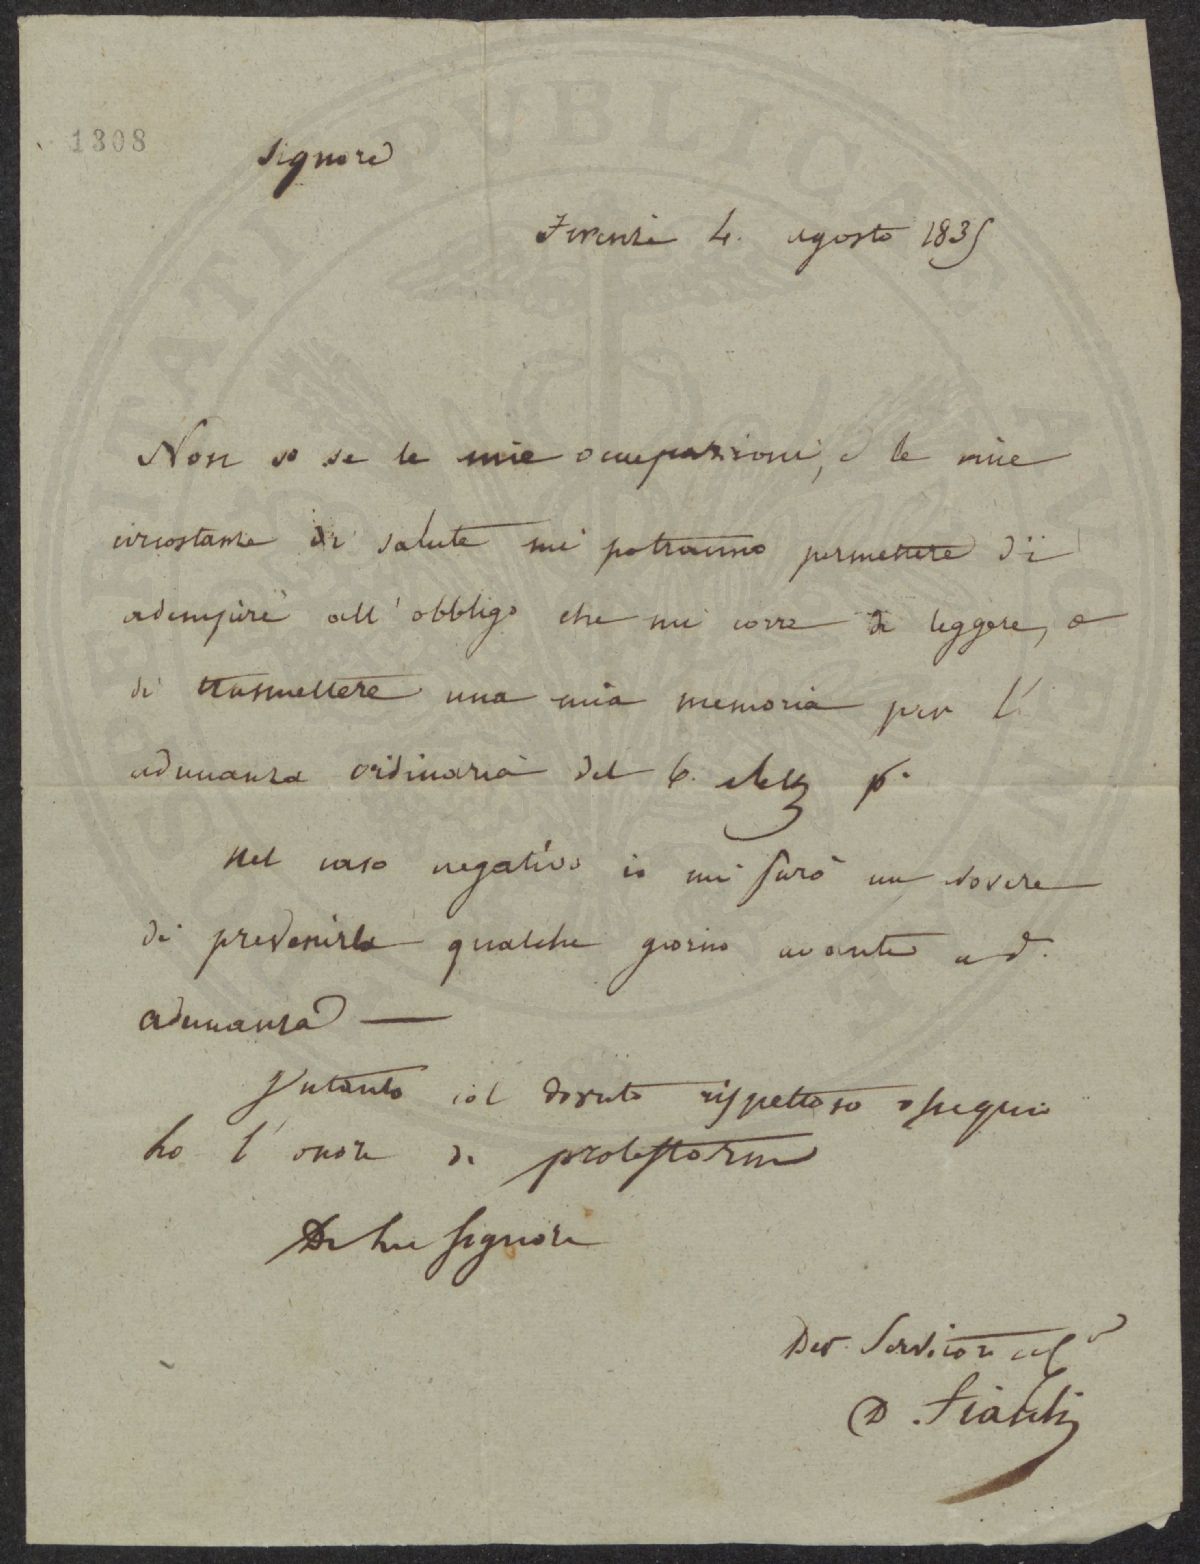 1308
Signore
Firenze 4. agosto 1835
Non so se le mie occupazioni, e le mie
circostanze di salute mi potranno permettere di
adempire all'obbligo che mi corre di leggere, e
di trasmettere una mia memoria per l'
adunanza ordinaria del 6. p.
Nel caso negativo io mi farò un dovere
di prevenirla qualche giorno avanti a d.
adunanza —
Intanto col dovuto rispettoso ossequio
ho l'onore di protestarmi
Di Lei Signore
Dev. Servitore
D.